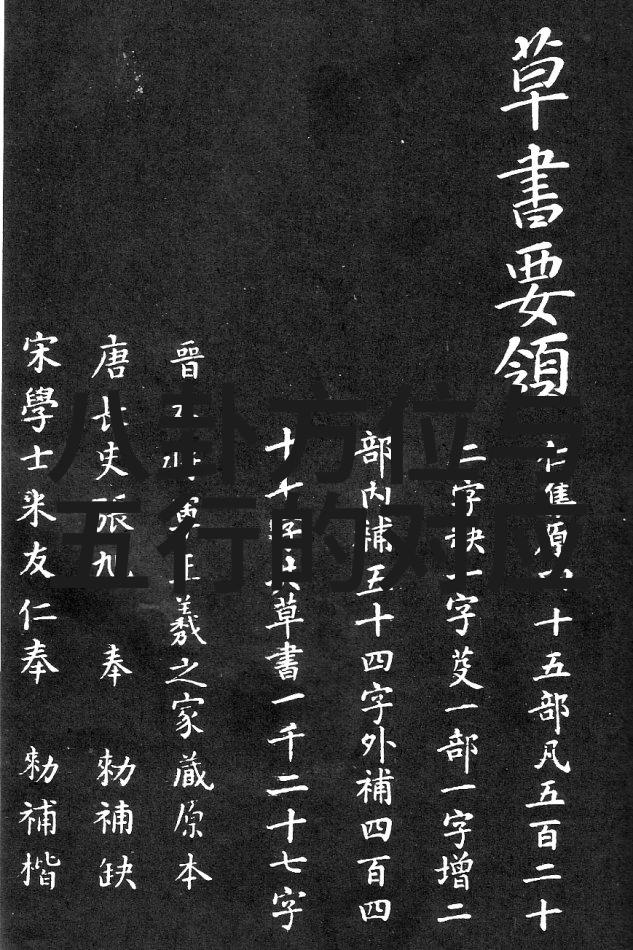 草書要領
十五部凡五百二十
二字缺一字芟一部一字增二
部內補五十四字外補四百四
十
草書一千二十七字
晉
羲之家藏原本
唐長史張旭 奉 勑補缺
宋學士米友仁奉 勑補楷
八卦方位与
五行的对应